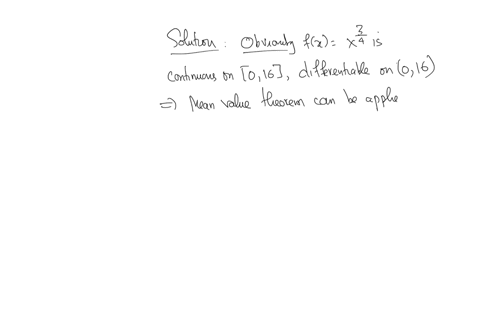 Solution : Obviously f(x) = x^{3/4} is
continuous on [0,16], differentiable on (0,16)
⇒ Mean value theorem can be applie